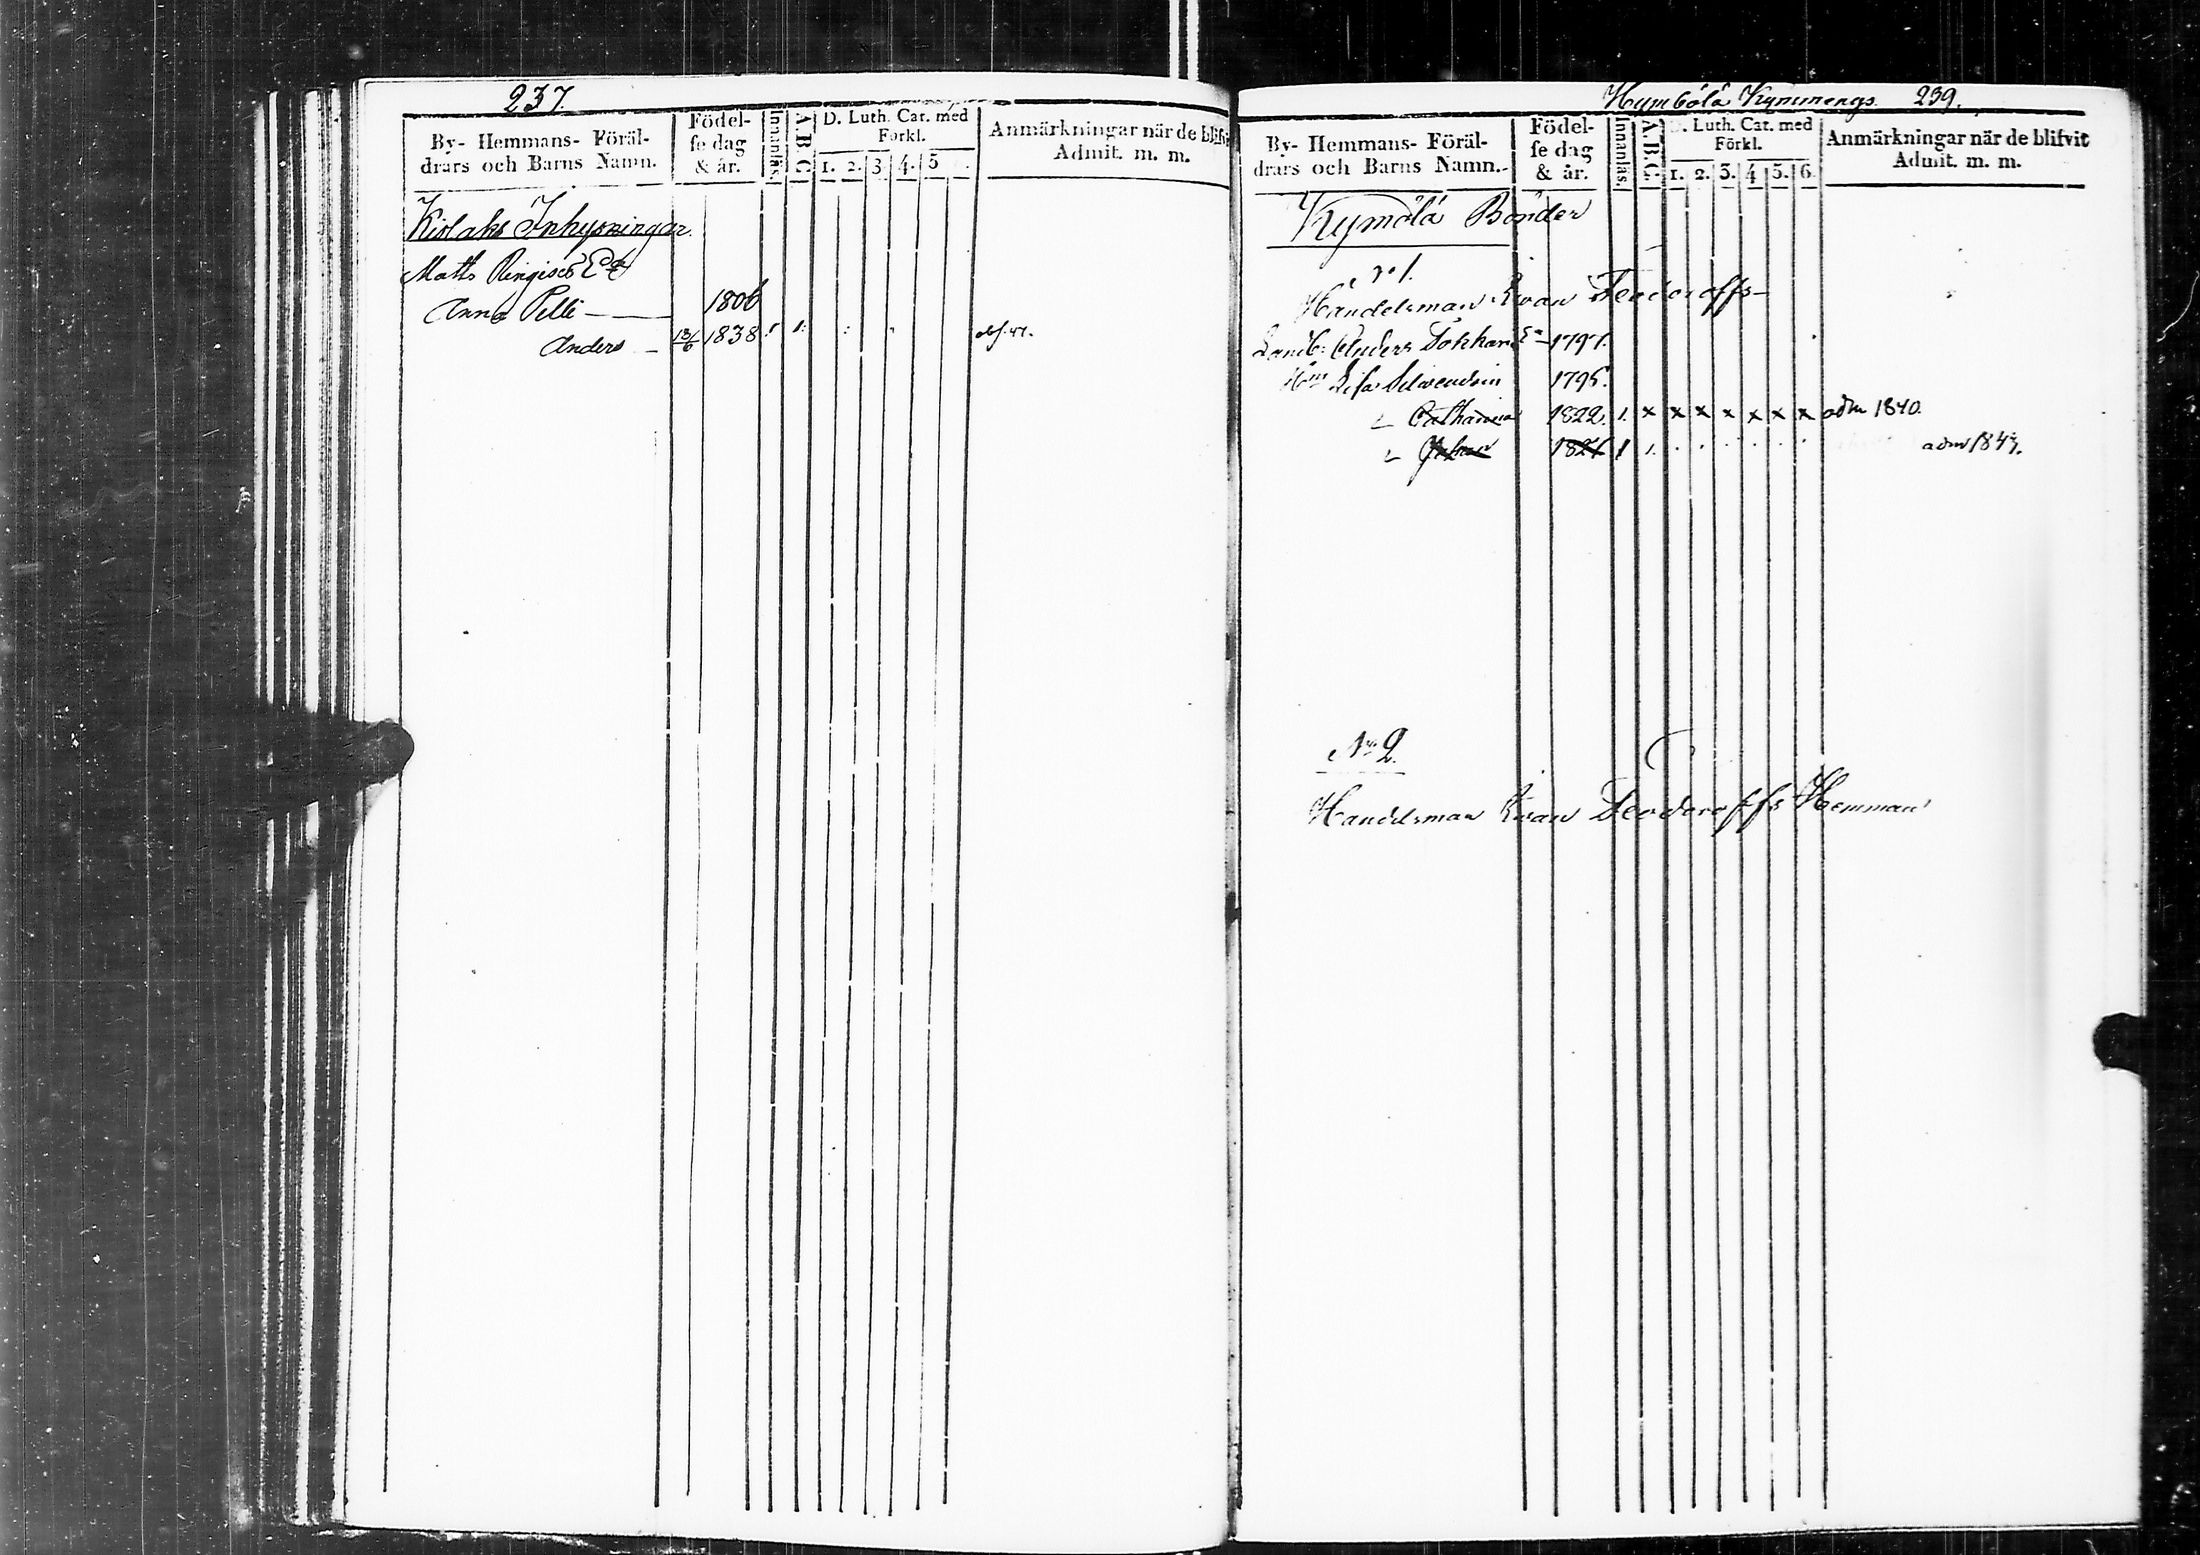 237.
By- Hemmans- Föräl-
drars och Barns Namn.
Födel-
se dag
& år.
Innanläs.
A.B.C.
D. Luth. Cat. med
Forkl.
1. 2. 3. 4. 5
Anmärkningar när de blifvi
Admit. m. m.
Kislaks Inhysningar
Matts
Anna Pelli — 1806
Anders — 13/6 1838 1 1. 47.
Hymbölä Kymmenegs. 239.
By- Hemmans- Föräl-
drars och Barns Namn.
Födel-
se dag
& år.
Innanläs.
A.B.C.
D. Luth. Cat. med
Förkl.
1. 2. 3. 4 5. 6.
Anmärkningar när de blifvit
Admit. m. m.
Kymölä Bönder
No 1.
Handelsman Iwan Feodoroffs
Anders 1797.
Lisa 1795.
Catharina 1822. 1. x x x x x x x adm 1840.
Johan 1821 1 1. adm 1843.
No 2.
Handelsman Iwan Feodoroffs Hemman